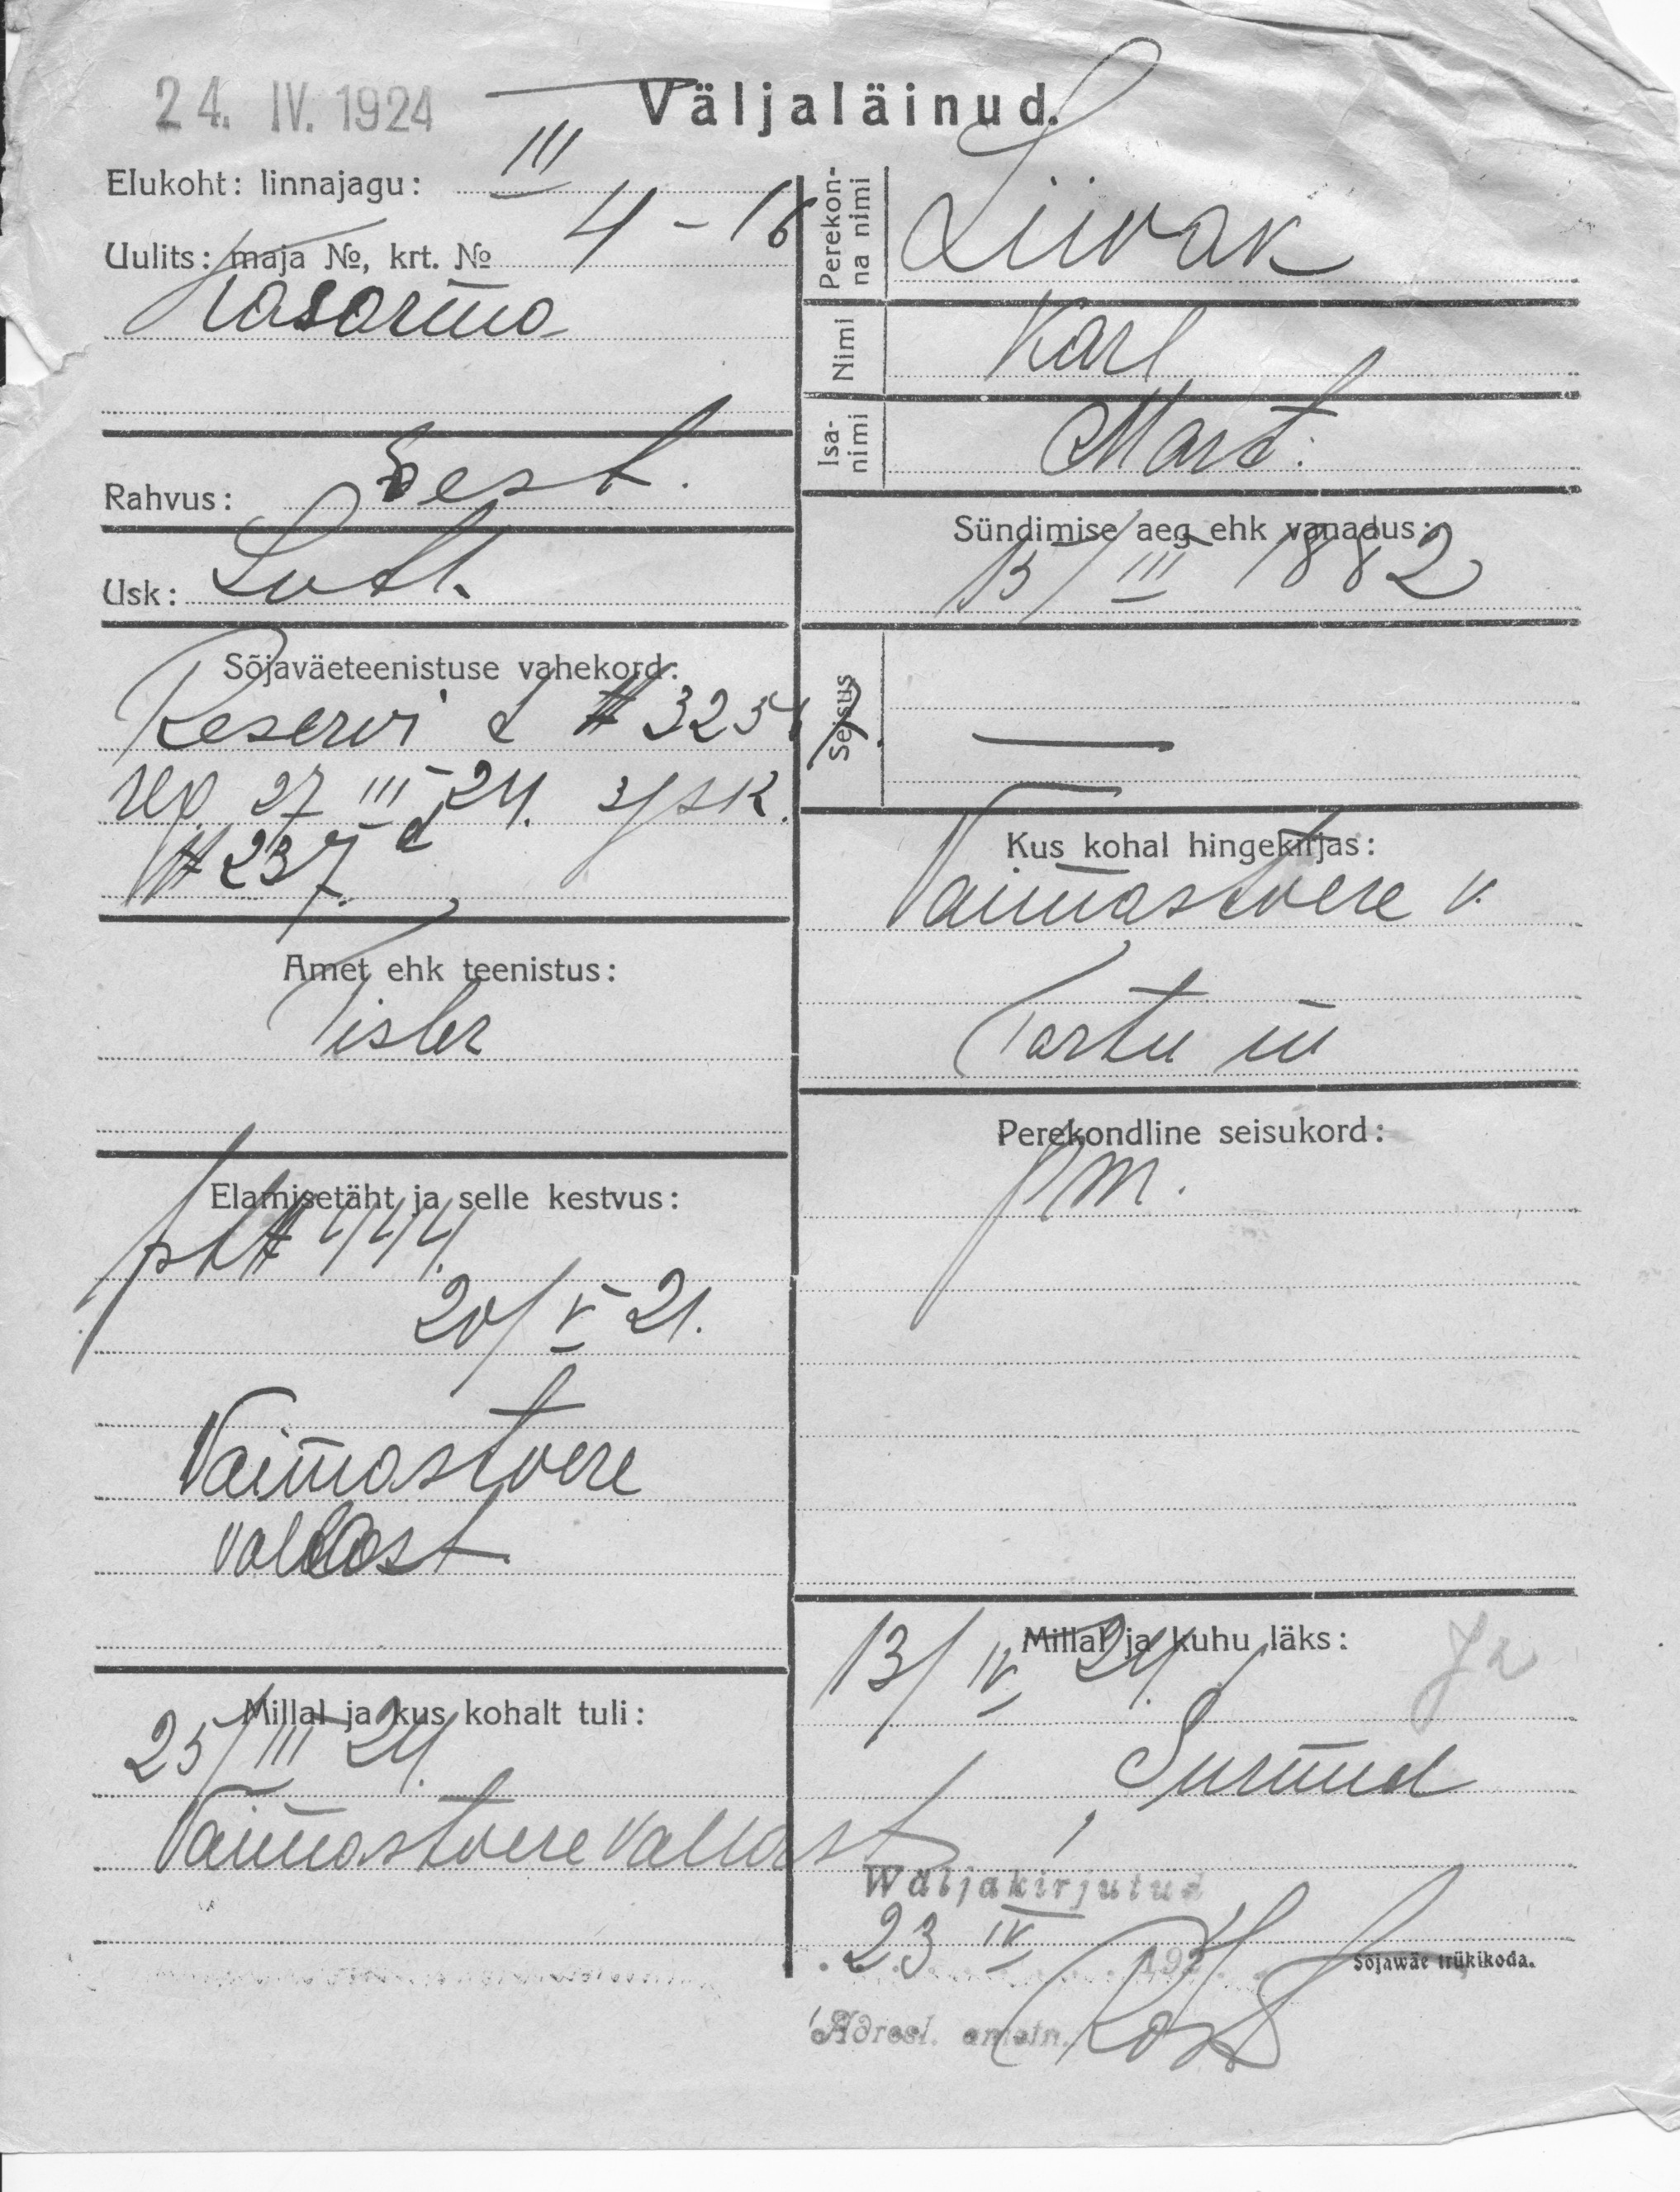 24. IV. 1924
Väljaläinud.
Elukoht: linnajagu: III
Uulits: maja №, krt. № 4 - 16
Kasarma
Rahvus: Eest.
Usk: Lutl.
Sõjaväeteenistuse vahekord:
Reservi t № 3251
reg. 27 III 24.
№ 237
Amet ehk teenistus:
Tisler
Elamisetäht ja selle kestvus:
№ 444
20/V 21.
Vaimastvere
vallast
Millal ja kus kohalt tuli:
25/III 24.
Vaimastvere vallast
Perekon-
na nimi
Liivak
Nimi
Karl
Isa-
nimi
Mart.
Sündimise aeg ehk vanadus:
15/III 1882
Seisus
—
Kus kohal hingekirjas:
Vaimastvere v.
Tartu m
Perekondline seisukord:
pm.
Millal ja kuhu läks:
13/IV 24.
Surnud
Wäljakirjutud
23 IV 1924
Sõjawäe trükikoda.
Adresl. ametn.